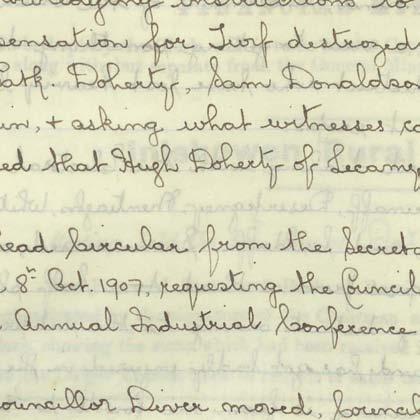 instructions to
ensation for Turf destroyed
Path. Doherty, Sam Donaldson
in, + asking what witnesses co
ed that Hugh Doherty of Lecamy
ead Circular from the Secreta
8th Oct. 1907, requesting the Council
Annual Industrial Conference
ouncillor Diver moved, Council